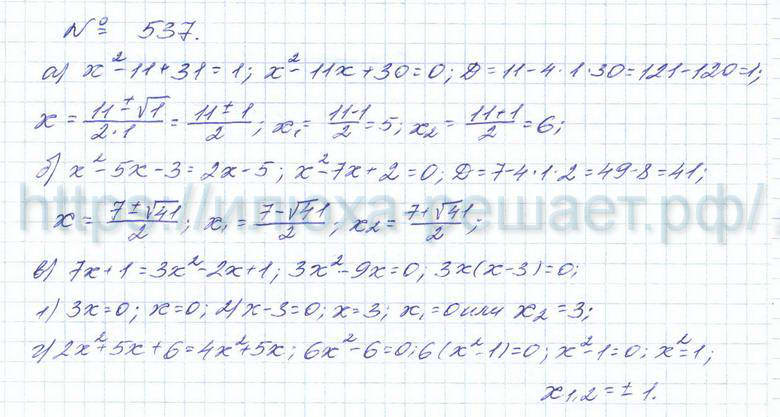 № 537.
а) x²-11+31=1; x²-11x+30=0; D=11-4·1·30=121-120=1;
x = (11±√1)/(2·1) = (11±1)/2; x₁ = (11-1)/2 = 5; x₂ = (11+1)/2 = 6;
б) x²-5x-3=2x-5; x²-7x+2=0; D=7-4·1·2=49-8=41;
https://илюха-решает.рф/
x = (7±√41)/2; x₁ = (7-√41)/2; x₂ = (7+√41)/2;
в) 7x+1=3x²-2x+1; 3x²-9x=0; 3x(x-3)=0;
1) 3x=0; x=0; 2) x-3=0; x=3; x₁=0 или x₂=3;
г) 2x²+5x+6=4x²+5x; 6x²-6=0; 6(x²-1)=0; x²-1=0; x²=1;
x₁,₂=±1.